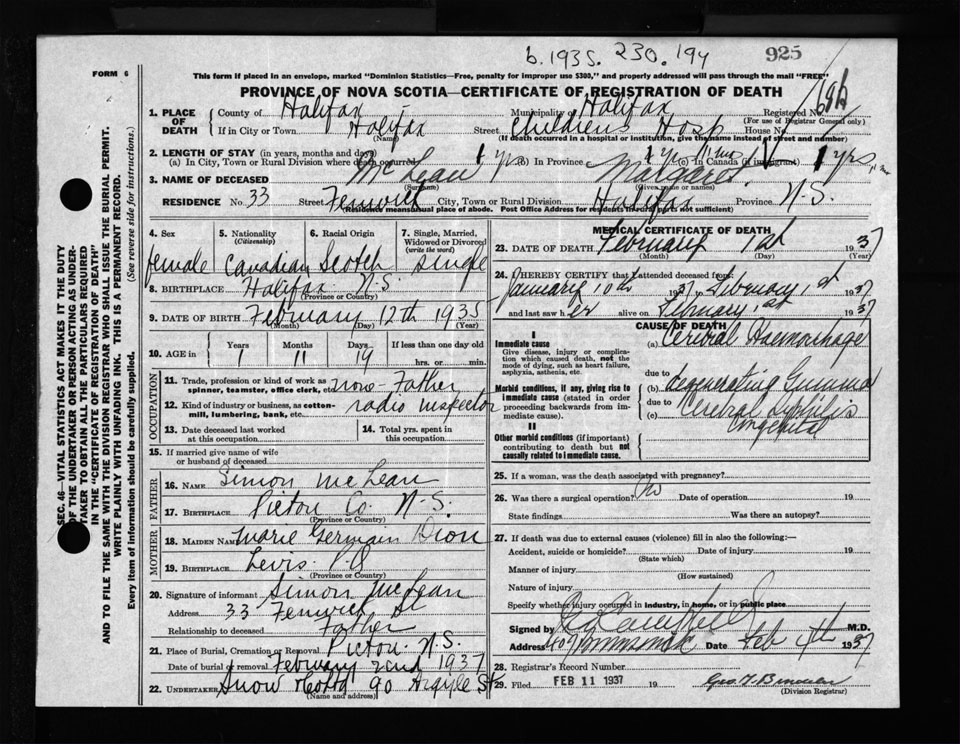 b. 1935. 230. 194
925
FORM 6
This form if placed in an envelope, marked "Dominion Statistics—Free, penalty for improper use $300," and properly addressed will pass through the mail "FREE"
PROVINCE OF NOVA SCOTIA—CERTIFICATE OF REGISTRATION OF DEATH
SEC. 46—VITAL STATISTICS ACT MAKES IT THE DUTY
OF THE UNDERTAKER OR PERSON ACTING AS UNDER-
TAKER TO OBTAIN ALL THE PARTICULARS REQUIRED
IN THE "CERTIFICATE OF REGISTRATION OF DEATH"
AND TO FILE THE SAME WITH THE DIVISION REGISTRAR WHO SHALL ISSUE THE BURIAL PERMIT.
WRITE PLAINLY WITH UNFADING INK. THIS IS A PERMANENT RECORD.
Every item of information should be carefully supplied. (See reverse side for instructions.)
1. PLACE OF DEATH County of Halifax Municipality of Halifax Registered No.
(For use of Registrar General only)
If in City or Town Halifax Street Childrens Hosp House No.
(Name) (If death occurred in a hospital or institution, give the name instead of street and number)
2. LENGTH OF STAY (in years, months and days)
(a) In City, Town or Rural Division where death occurred 1 yrs (b) In Province 1 yr (c) In Canada (if immigrant) 1 yrs
3. NAME OF DECEASED McLean Margaret
(Surname) (Given name or names)
RESIDENCE No. 33 Street Fenwick City, Town or Rural Division Halifax Province N.S.
(Residence means usual place of abode. Post Office Address for residents in rural parts not sufficient)
4. Sex
female
5. Nationality
(Citizenship)
Canadian
6. Racial Origin
Scotch
7. Single, Married,
Widowed or Divorced
(write the word)
single
8. BIRTHPLACE Halifax N.S.
(Province or Country)
9. DATE OF BIRTH February 12th 1935
(Month) (Day) (Year)
10. AGE in Years Months Days If less than one day
1 11 19 hrs. or min.
OCCUPATION
11. Trade, profession or kind of work as
spinner, teamster, office clerk, etc. none - Father
12. Kind of industry or business, as cotton-
mill, lumbering, bank, etc. radio inspector
13. Date deceased last worked
at this occupation
14. Total yrs. spent in
this occupation
15. If married give name of wife
or husband of deceased
FATHER
16. NAME Simon McLean
17. BIRTHPLACE Pictou Co. N.S.
(Province or Country)
MOTHER
18. MAIDEN NAME Marie Germain Dion
19. BIRTHPLACE Levis P.Q
(Province or Country)
20. Signature of informant Simon McLean
Address 33 Fenwick St
Relationship to deceased Father
21. Place of Burial, Cremation or Removal Pictou N.S.
Date of burial or removal February 22nd 1937
22. UNDERTAKER Snow 90 Argyle St
(Name and address)
MEDICAL CERTIFICATE OF DEATH
23. DATE OF DEATH February 1st 1937
(Month) (Day) (Year)
24. I HEREBY CERTIFY that I attended deceased from:
January 10th 1937 to February 1st 1937
and last saw her alive on February 1st 1937
CAUSE OF DEATH
I
Immediate cause
Give disease, injury or complica-
tion which caused death, not the
mode of dying, such as heart failure,
asphyxia, asthenia, etc.
(a) Cerebral Haemorrhage
due to
Morbid conditions, if any, giving rise to
immediate cause (stated in order
proceeding backwards from im-
mediate cause).
(b) degenerating Gumma
due to
(c) Cerebral Syphilis
Congenital
II
Other morbid conditions (if important)
contributing to death but not
causally related to immediate cause.
25. If a woman, was the death associated with pregnancy?
26. Was there a surgical operation? No Date of operation 19
State findings Was there an autopsy?
27. If death was due to external causes (violence) fill in also the following:—
Accident, suicide or homicide? Date of injury 19
(State which)
Manner of injury
(How sustained)
Nature of injury
Specify whether injury occurred in industry, in home, or in public place
Signed by M.D.
Address Date Feb 4th 1937
28. Registrar's Record Number
29. Filed FEB 11 1937 19
(Division Registrar)